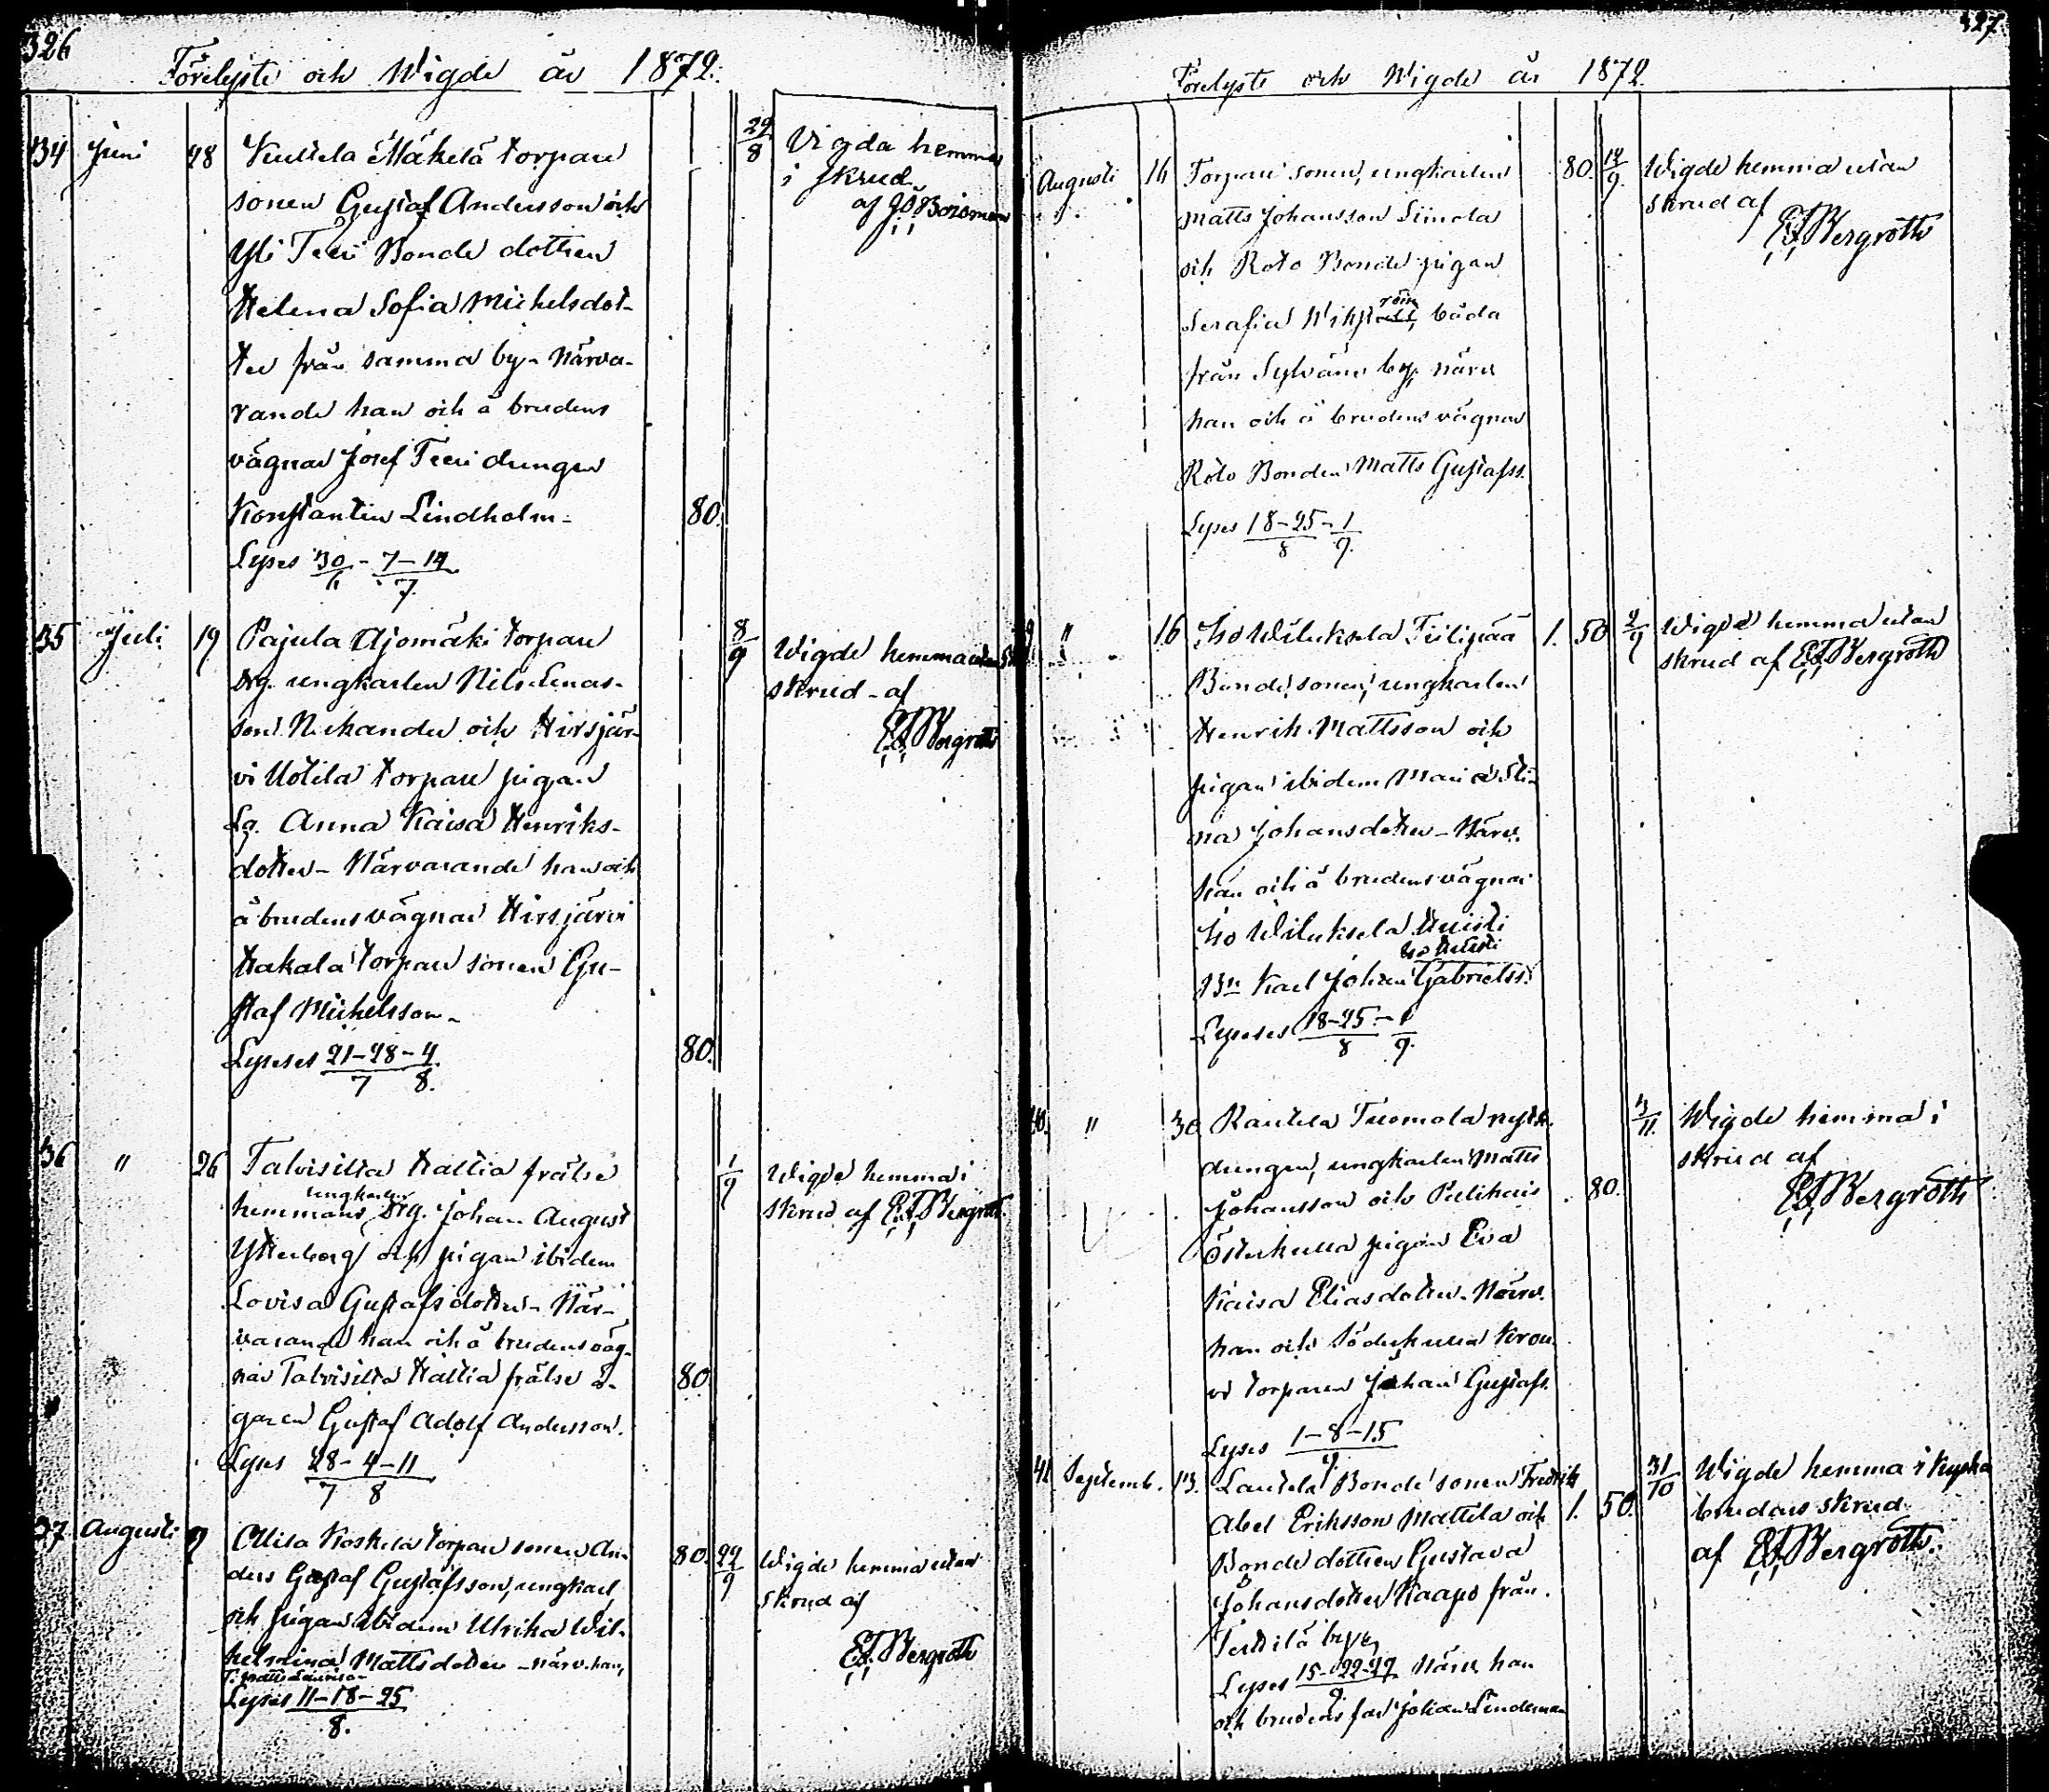 326
Förelyste och Wigde år 1872.
34 Juni 28 Mäkelä torpare 29/8 Vigda hemma
sonen Gustaf Andersson och i skrud
Yli Teeri Bonde dottren af
Helena Sofia Michelsdot-
ter från samma by - Närva-
rande han och å brudens
vägnar Josef Teeri drengen
Konstantin Lindholm - 80.
Lyses 30/6 - 7-14/7
35 Juli 19 Pajula Ajomäki torpare 8/9 Wigde hemma utan
drg. ungkarlen Nils Enas- skrud - af
son Nikander och Hirsjär- E.J. Bergroth
vi Uotila torpare pigan
Lg. Anna Kaisa Henriks-
dotter - Närvarande han och
å brudens vägnar Hirsjärvi
Hakala torpare sonen Gu-
staf Michelsson -
Lyses 21-28-4 80.
7 8.
36 " 26 Talvisilta Hallia frälse 1/9 Wigde hemma i
hemmans ungkarlen drg. Johan August skrud af E.J. Bergroth
Ytterborg och pigan ibidem
Lovisa Gustafsdotter - När-
varande han och å brudens väg-
nar Talvisilta Hallia frälse ä- 80.
garen Gustaf Adolf Andersson.
Lyses 28-4-11
7 8
37. Augusti 9 Ollila Koskela torpare sonen An- 80. 22/9 Wigde hemma utan
ders Gustaf Gustafsson, ungkarl skrud af
och pigan ibidem Ulrika Wil- E.J. Bergroth
helmina Mattsdotter - närv. han,
Lyses 11-18-25
8.
327.
Förelyste och Wigde år 1872.
Augusti 16 Torpare sonen, ungkarlen 80. 14/9. Wigde hemma utan
Matts Johansson Simola skrud af
och Roto Bonde pigan E.J. Bergroth
Serafia Wikström, båda
från Sylvänä by, närv
han och å brudens vägnar
Roto Bonden Matts Gustafss.
Lyses 18-25-1
8 9.
" 16 Iso Wiluksela Tiilipää 1. 50 2/9 Wigde hemma utan
Bonde sonen, ungkarlen skrud af E.J. Bergroth
Henrik Mattsson och
pigan ibidem Maria Sti-
na Johansdotter - Närv.
han och å brudens vägnar
Iso Wiluksela Heristi
Bn Karl Johan Gabrielss.
Lyses 18-25-1
8 9.
40. " 30 Rautela Tuomola nyb. 3/11. Wigde hemma i
drengen, ungkarlen Matts skrud af
Johansson och Pulihais 80. E.J. Bergroth
Österkulla pigan Eva
Kaisa Eliasdotter. Närv.
han och Söderkulla Krou
vi torparen Johan Gustafs.
Lyses 1-8-15
9.
41 Septemb. 13. Lautela Bonde sonen Fredrik 31/10 Wigde hemma i kyrko
Abel Eriksson Mattila och 1. 50. brudens skrud
Bonde dottren Gustava af E.J. Bergroth.
Johansdotter Kaapo från
Terttilä by
Lyses 15-22-29 Närv. han
9
och brudens far Johan Lindeman